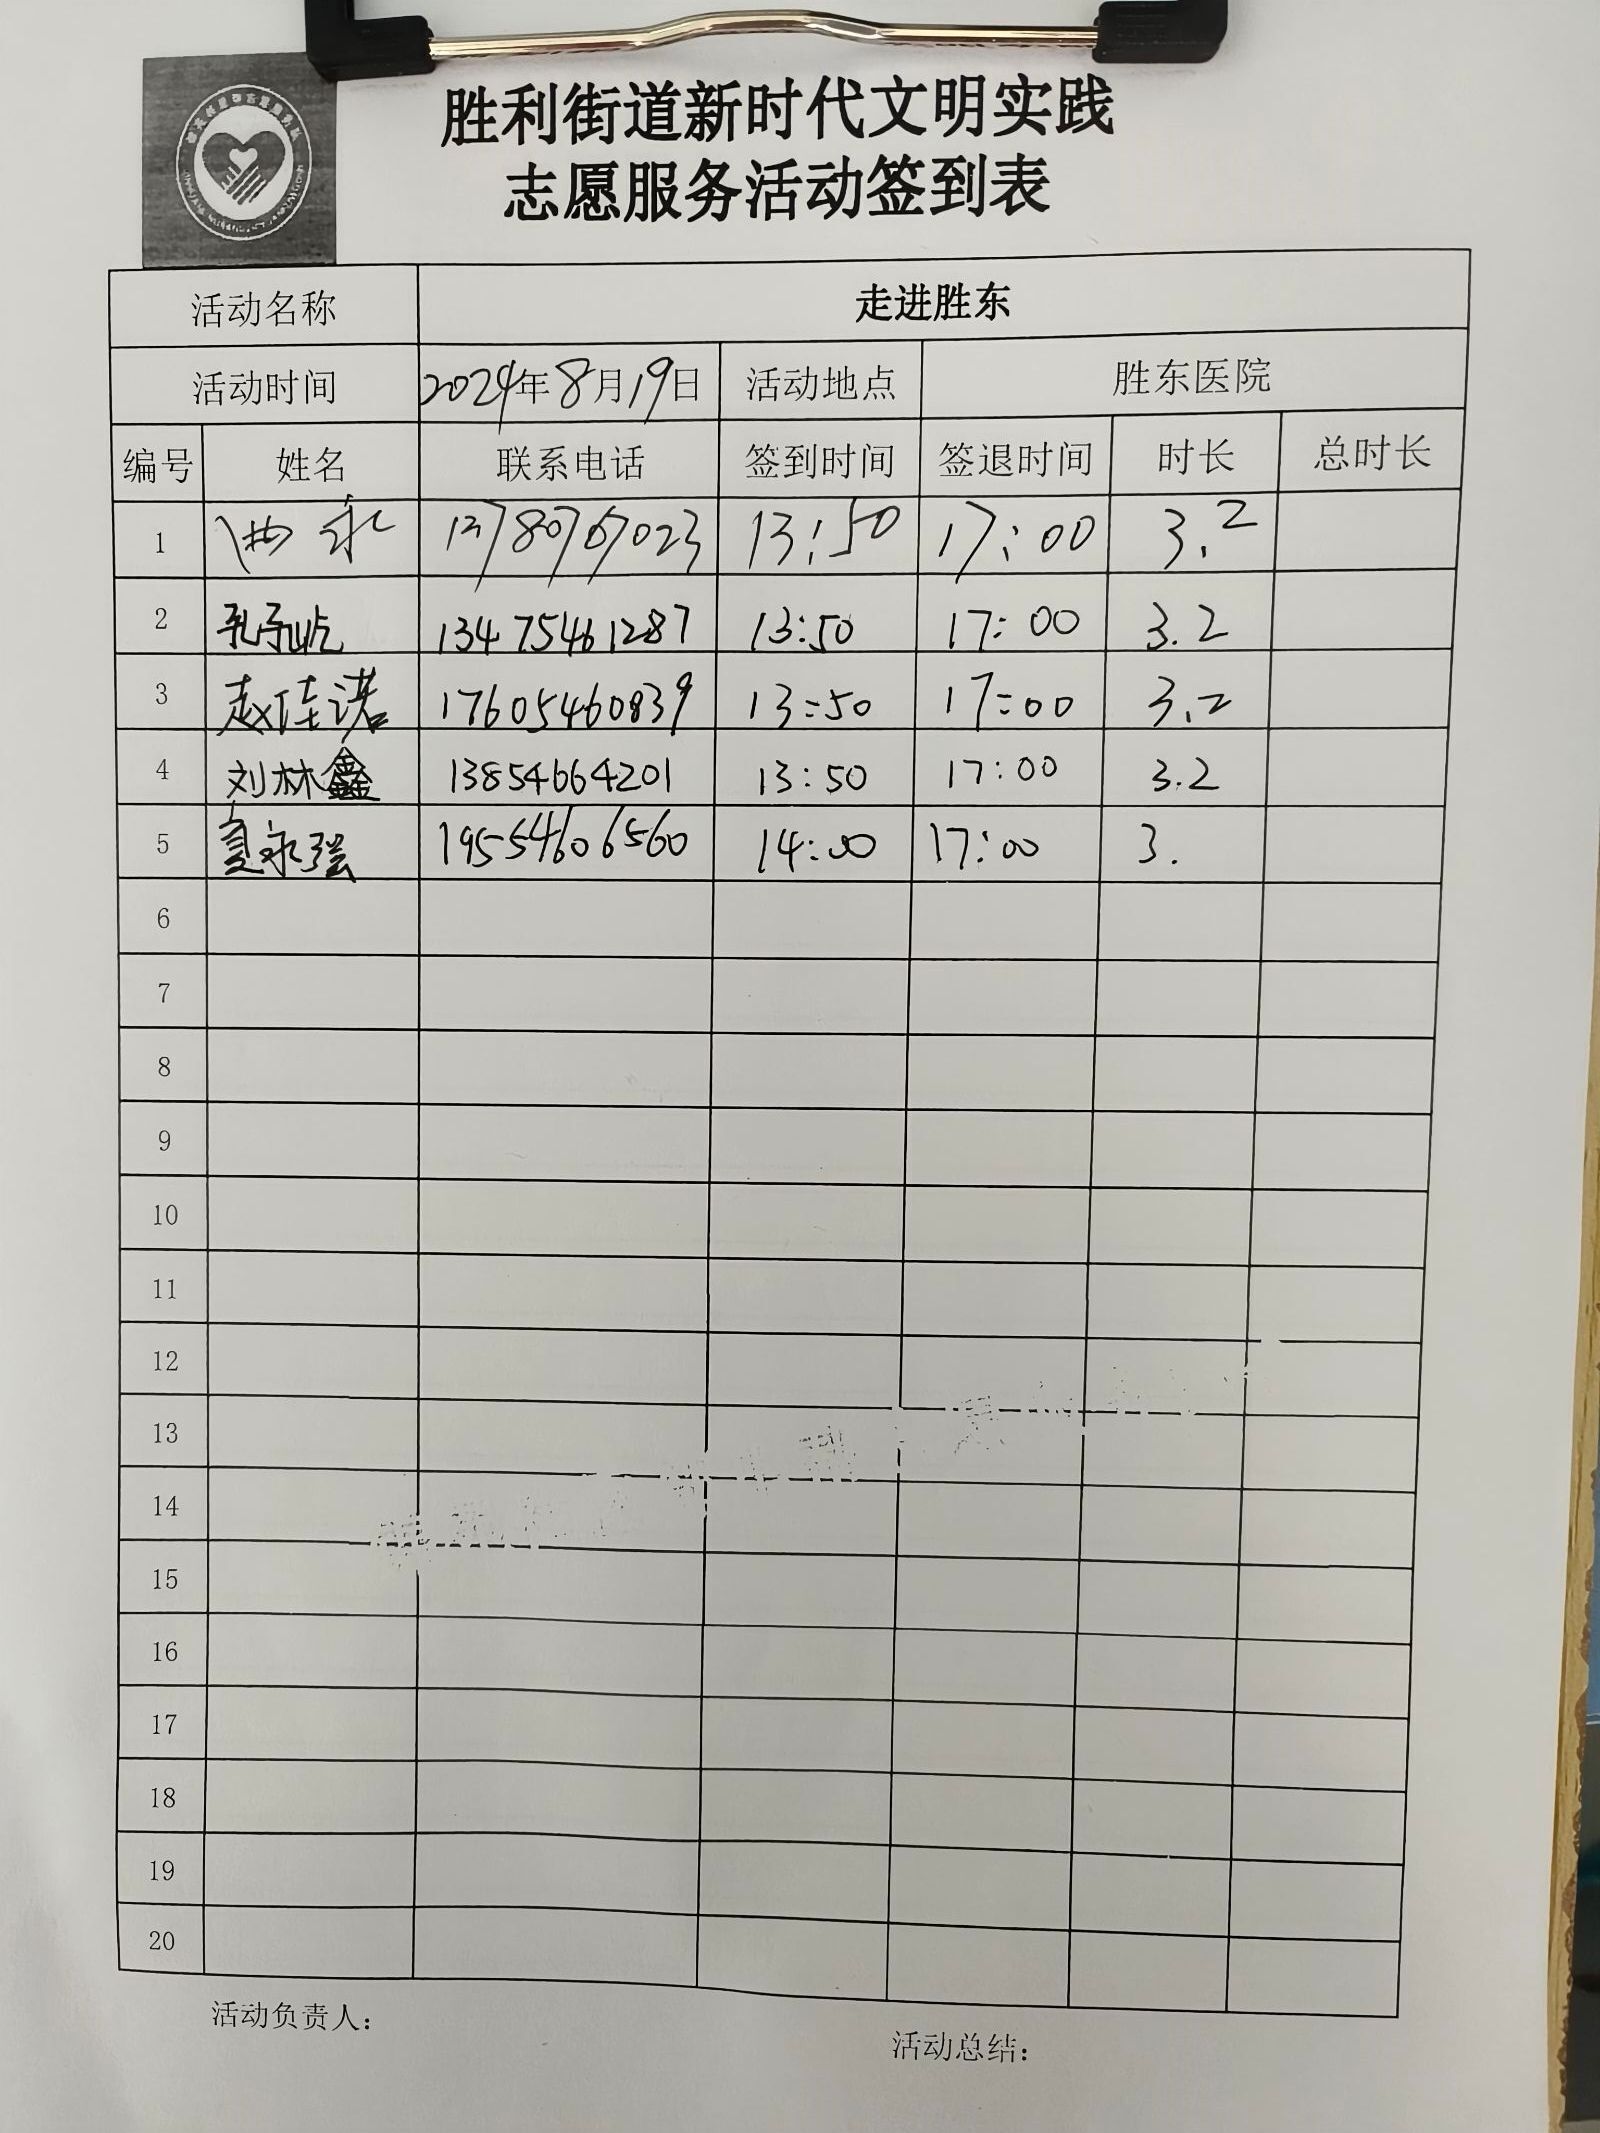 胜利街道新时代文明实践
志愿服务活动签到表
活动名称 走进胜东
活动时间 2024年8月19日 活动地点 胜东医院
编号 姓名 联系电话 签到时间 签退时间 时长 总时长
1 13:50 17:00 3.2
2 孔子屹 13475461287 13:50 17:00 3.2
3 赵佳诺 17605460839 13:50 17:00 3.2
4 刘林鑫 13854664201 13:50 17:00 3.2
5 夏永强 19554606560 14:00 17:00 3.
6
7
8
9
10
11
12
13
14
15
16
17
18
19
20
活动负责人：
活动总结：